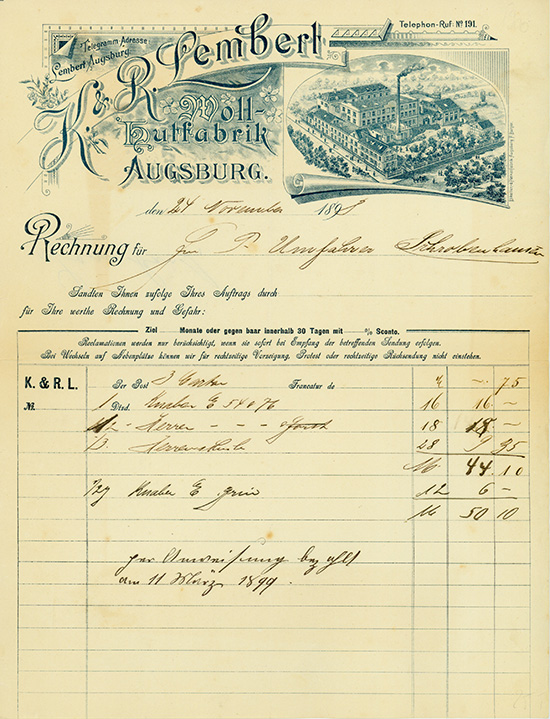 Telegramm-Adresse:
Lembert Augsburg.
Telephon-Ruf: No 191.
K. & R. Lembert
Woll-
hutfabrik
AUGSBURG.
den 24 November 1898
Rechnung für P. Umfahrer Schrobenhausen
Sandten Ihnen zufolge Ihres Auftrags durch
für Ihre werthe Rechnung und Gefahr:
Ziel Monate oder gegen baar innerhalb 30 Tagen mit % Sconto.
Reclamationen werden nur berücksichtigt, wenn sie sofort bei Empfang der betreffenden Sendung erfolgen.
Bei Wechseln auf Nebenplätze können wir für rechtzeitige Vorzeigung, Protest oder rechtzeitige Rücksendung nicht einstehen.
K. & R. L. Per Post 3 Francatur de 75
No. 1 Dtzd. Knaben E 54 16 16 -
Herren - - - 18 18 -
28 9 35
M 44 10
Knaben E grün 12 6 -
M 50 10
per Anweisung bezahlt
am 11 März 1899.